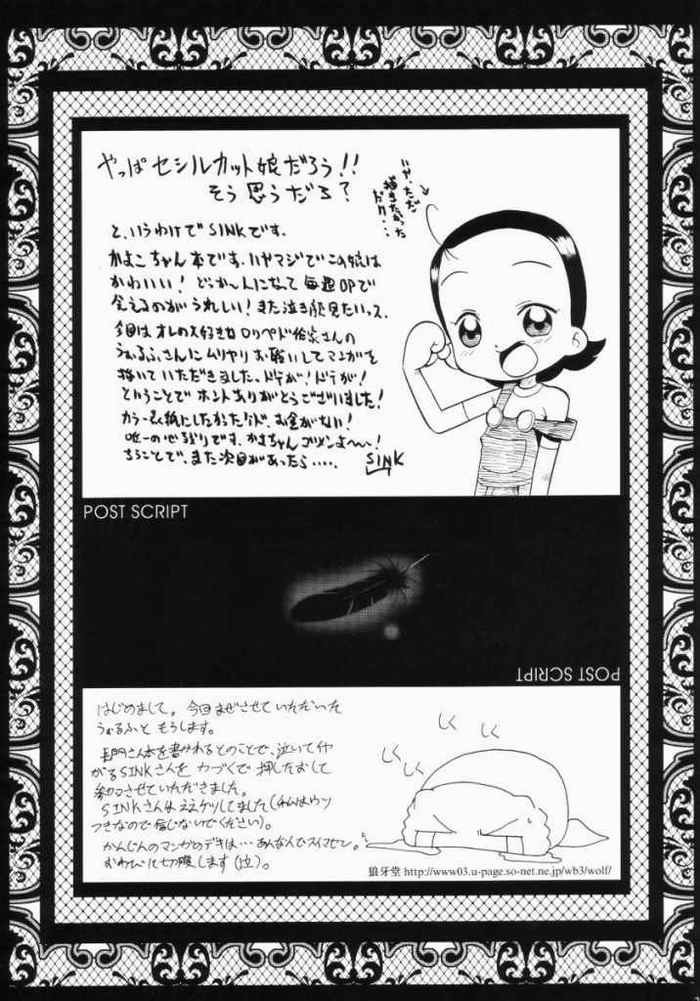 やっぱ セシルカット娘だろう!!
そう思うだろ?
いや、ただ
描きたかった
ダケ・・・
と、いうわけで SINKです。
かよこちゃん本です。ハヤマジでこの娘は
かわいい! どらか〜んになって毎週OPで
会えるのがうれしい! また泣き顔見たいっス。
今回は オレの大好きな ロリペド作家さんの
うぉるふさんにムリヤリお願いしてマンガを
描いていただきました。ドテが! ドテが!
ということで ホントありがとうございました!
カラー表紙にしたかったけど、お金がない!
唯一の心残りです。かよちゃんゴメンよ〜〜!
ちうことで、また次回があったら・・・・ SINK
POST SCRIPT
POST SCRIPT
はじめまして。今回まぜさせていただいた
うぉるふと もうします。
長門さん本を書かれるとのことで、泣いてイヤ
がるSINKさんを 力づくで 押したおして
参加させていただきました。
SINKさんは ええケツしてました(わんはウソ
つきなので信じないでください)。
かんじんのマンガのデキは…あんなんでスイマセン。
おわびに切腹します(泣)。
しく
しく
しく
しく
狼牙堂 http://www03.u-page.so-net.ne.jp/wb3/wolf/